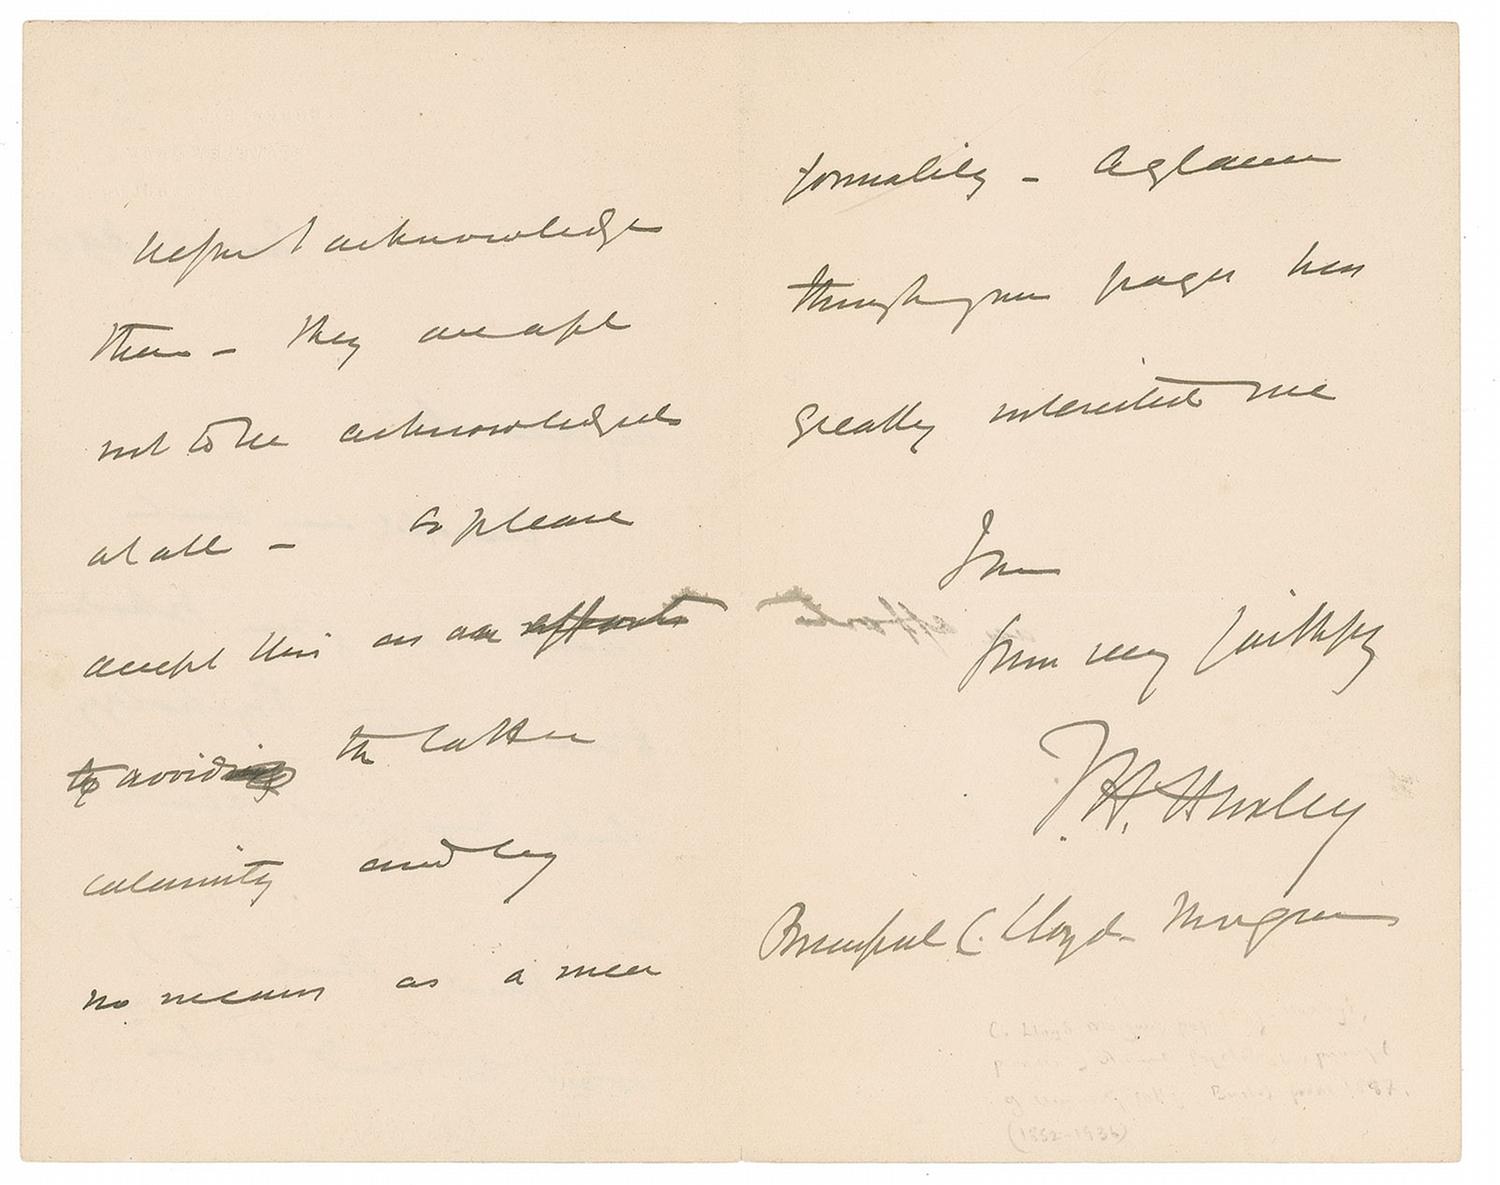 before I acknowledge
them – they are apt
not to be acknowledged
at all – So please
accept this as an efforts
to avoiding the latter
calamity and by
no means as a mere
formality – A glance
through your pages has
greatly interested me
I am
yours very faithfully
T. H. Huxley
Principal C. Lloyd Morgan
C. Lloyd Morgan
(1852-1936)